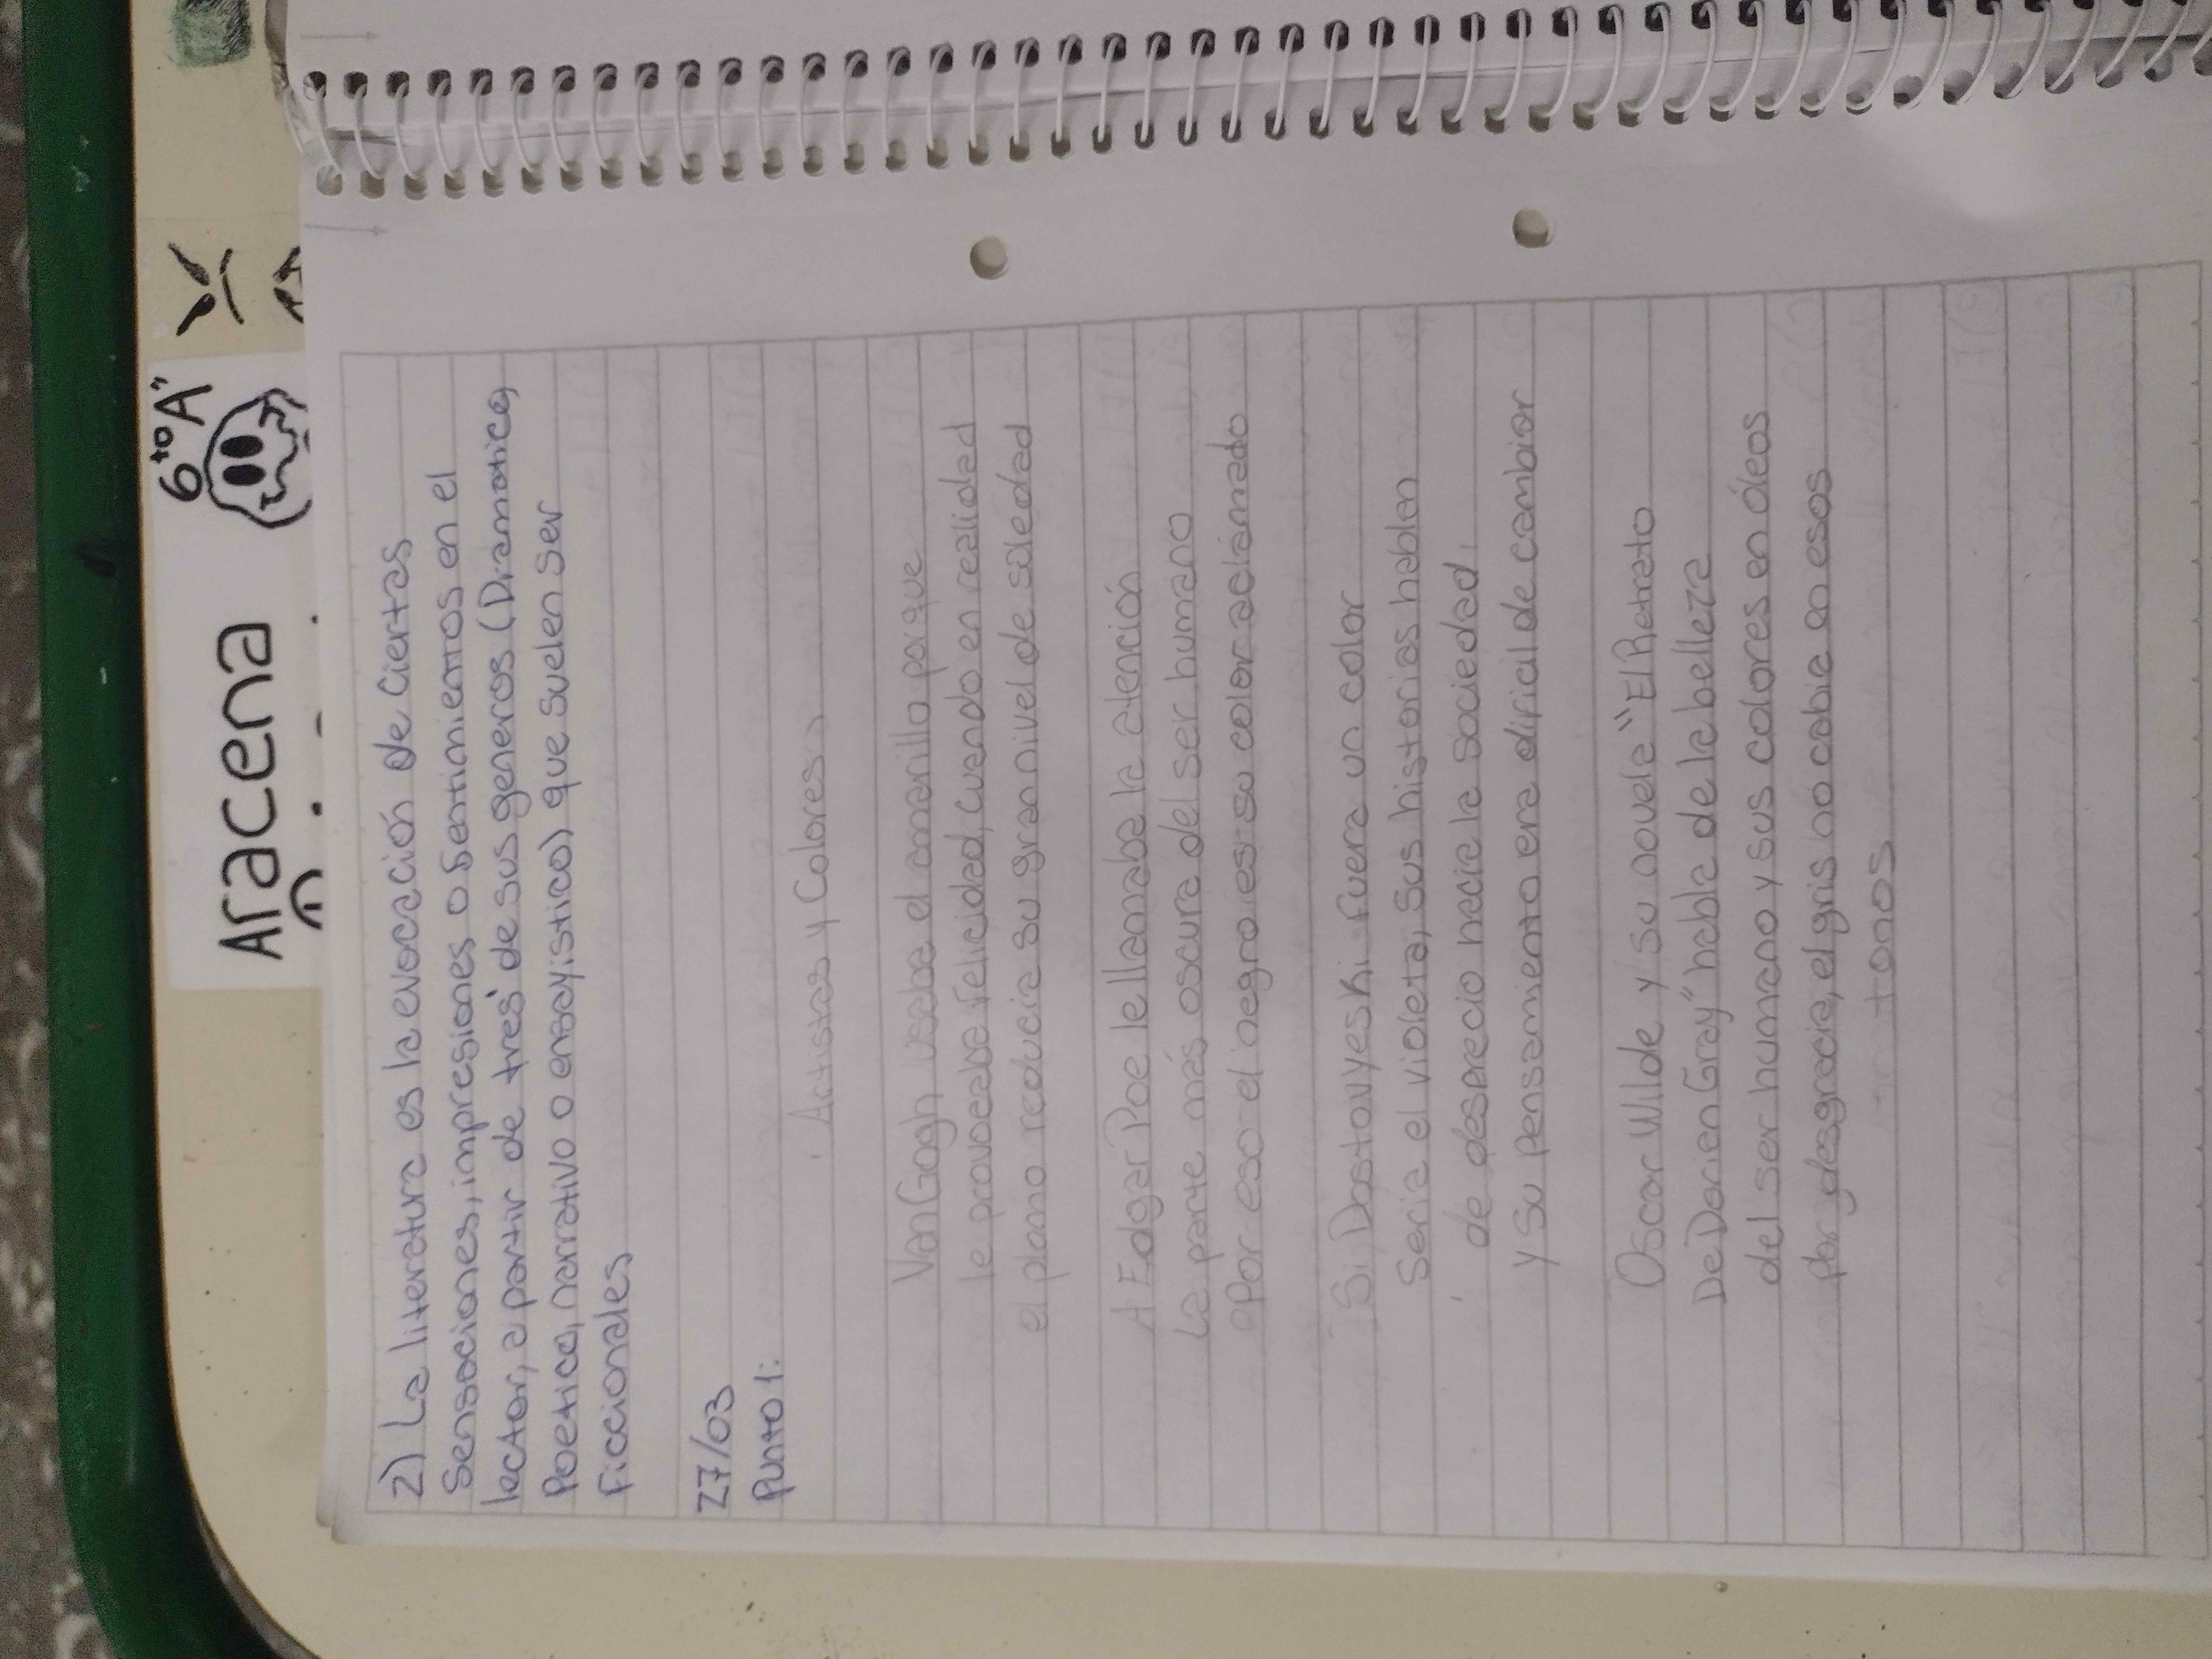 6to "A"
Aracena
2) La literatura es la evocación de ciertas
sensaciones, impresiones o sentimientos en el
lector, a partir de tres de sus generos (Dramatica,
Poetica, narrativo o ensayistico) que suelen ser
Ficcionales
27/03
Punto 1:
Artistas y Colores
Van Gogh usaba el amarillo porque
le provocaba felicidad, cuando en realidad
el plomo reducia su gran nivel de soledad
A Edgar Poe le llamaba la atención
La parte más oscura del ser humano
Por eso el negro es su color aclamado
Si Dostoyeski fuera un color
Seria el violeta, sus historias hablan
de desprecio hacia la sociedad,
y su pensamiento era dificil de cambiar
Oscar Wilde y su novela "El Retrato
De Dorien Gray" habla de la belleza
del ser humano y sus colores en óleos
por desgracia, el gris no cabia en esos
tonos